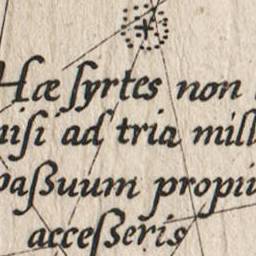 Hæ syrtes non
nisi ad tria mill
paßuum propii
acceßeris